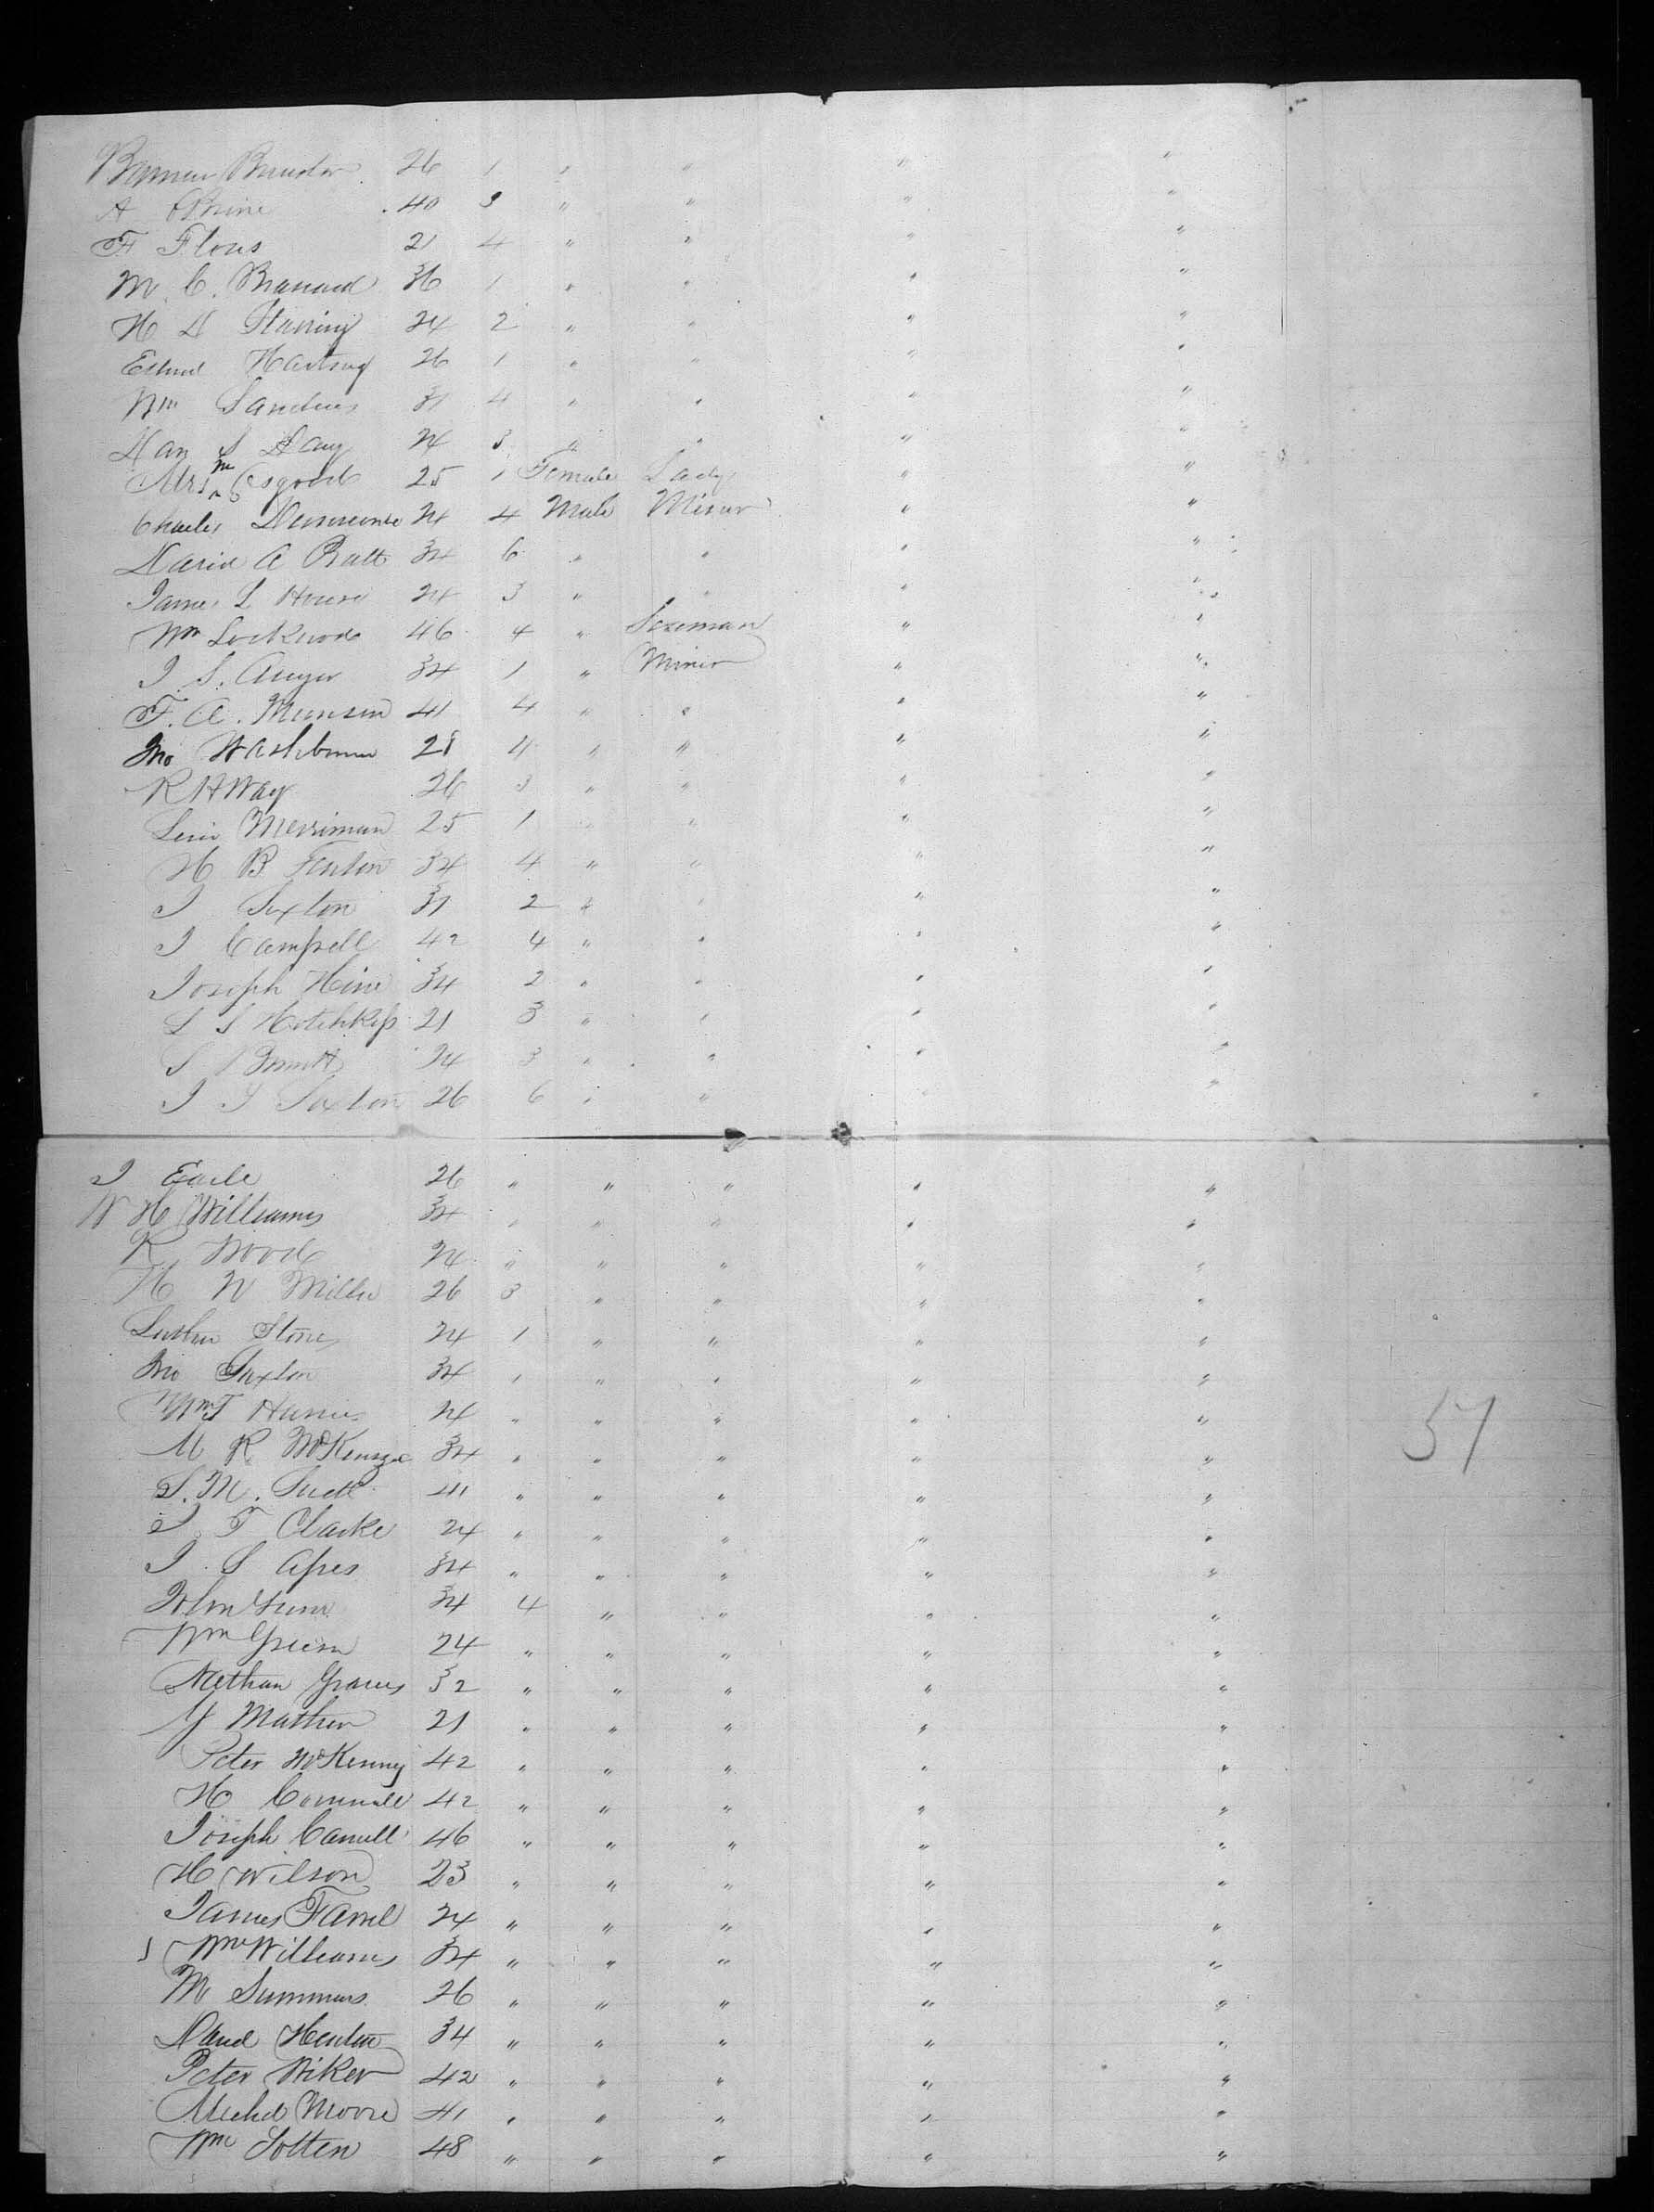 26 1 " " " "
A 40 3 " " " "
F Flous 21 4 " " " "
M. C. 36 1 " " " "
H D 24 2 " " " "
26 1 " " " "
Wm Sanders 31 4 " " " "
Dan S Day 24 3 " " " "
Mrs M Osgood 25 1 Female Lady " "
Charles 24 4 Male Miner " "
David A Pratt 34 6 " " " "
James L House 24 3 " " " "
Wm Lockwood 46 4 " " "
J. S. Auger 34 1 " Miner " "
F. A. Munson 41 4 " " " "
Jno Washburn 28 4 " " " "
R H Way 26 3 " " " "
Levi Merriman 25 1 " " " "
H B Fenton 34 4 " " " "
J Sexton 31 2 " " " "
J Campbell 42 4 " " " "
Joseph Hine 34 2 " " " "
L S Hotchkiss 21 3 " " " "
S 24 3 " " " "
J S Saxton 26 6 " " " "
J Earle 26 " " " " "
W H Williams 34 " " " " "
R Wood 24 " " " " "
H W Miller 26 3 " " " "
Luther Stone 24 1 " " " "
Jno Saxton 34 1 " " " "
Wm T 24 " " " " "
M R McKenzie 34 " " " " "
S. M. 41 " " " " "
J T Clarke 24 " " " " "
J. S 34 " " " " "
John 34 4 " " " "
Wm Green 24 " " " " "
Nathan Graves 32 " " " " "
Y Mather 21 " " " " "
Peter McKenny 42 " " " " "
H 42 " " " " "
Joseph 46 " " " " "
H Wilson 23 " " " " "
James Farrel 24 " " " " "
Wm Williams 34 " " " " "
M Summers 26 " " " " "
David 34 " " " " "
Peter Wiker 42 " " " " "
Michel Moore 41 " " " " "
Wm 48 " " " " "
57